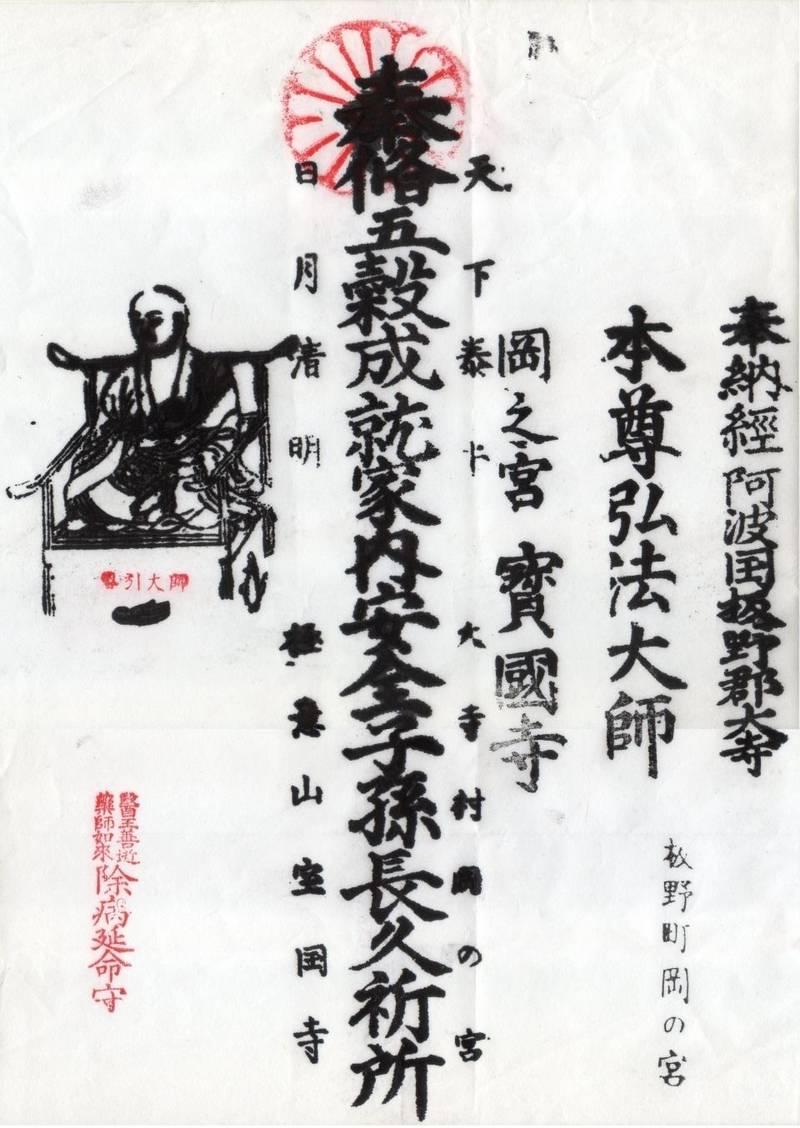 奉納經阿波国板野郡大寺
本尊弘法大師
板野町岡の宮
岡之宮 寶國寺
天下泰 大寺村岡の宮
奉脩五穀成就家内安全子孫長久祈所
日月清明 極意山室国寺
引大師
醫王善逝
藥師如來
除病延命守